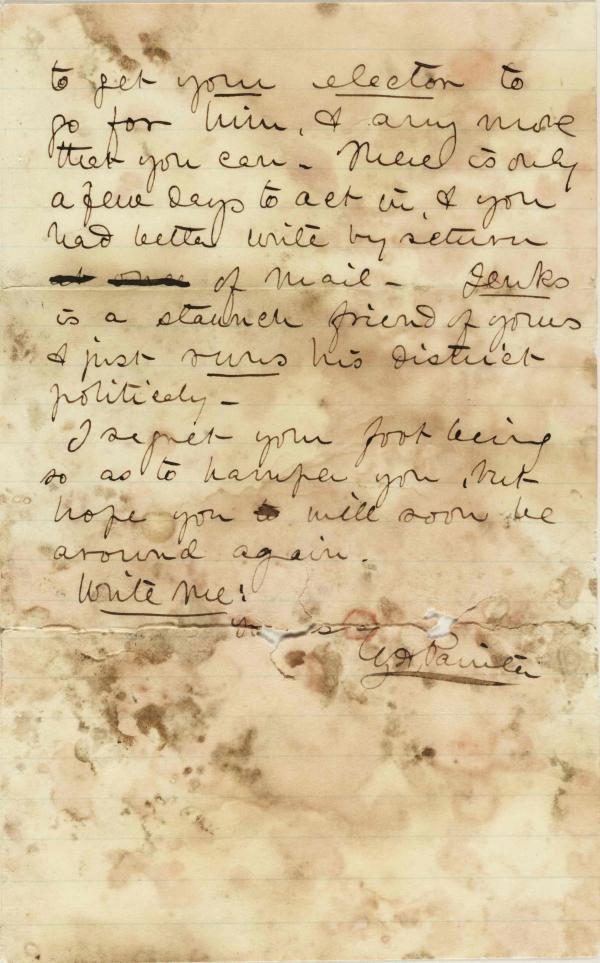 to get your elector to
go for him, & any more
that you can - There is only
a few days to act in, & you
had better write by return
at once of mail - Jenks
is a staunch friend of yours
& just runs his district
politicaly -
I regret your foot being
so as to hamper you, but
hope you to will soon be
around again.
Write me:
U.H. Painter